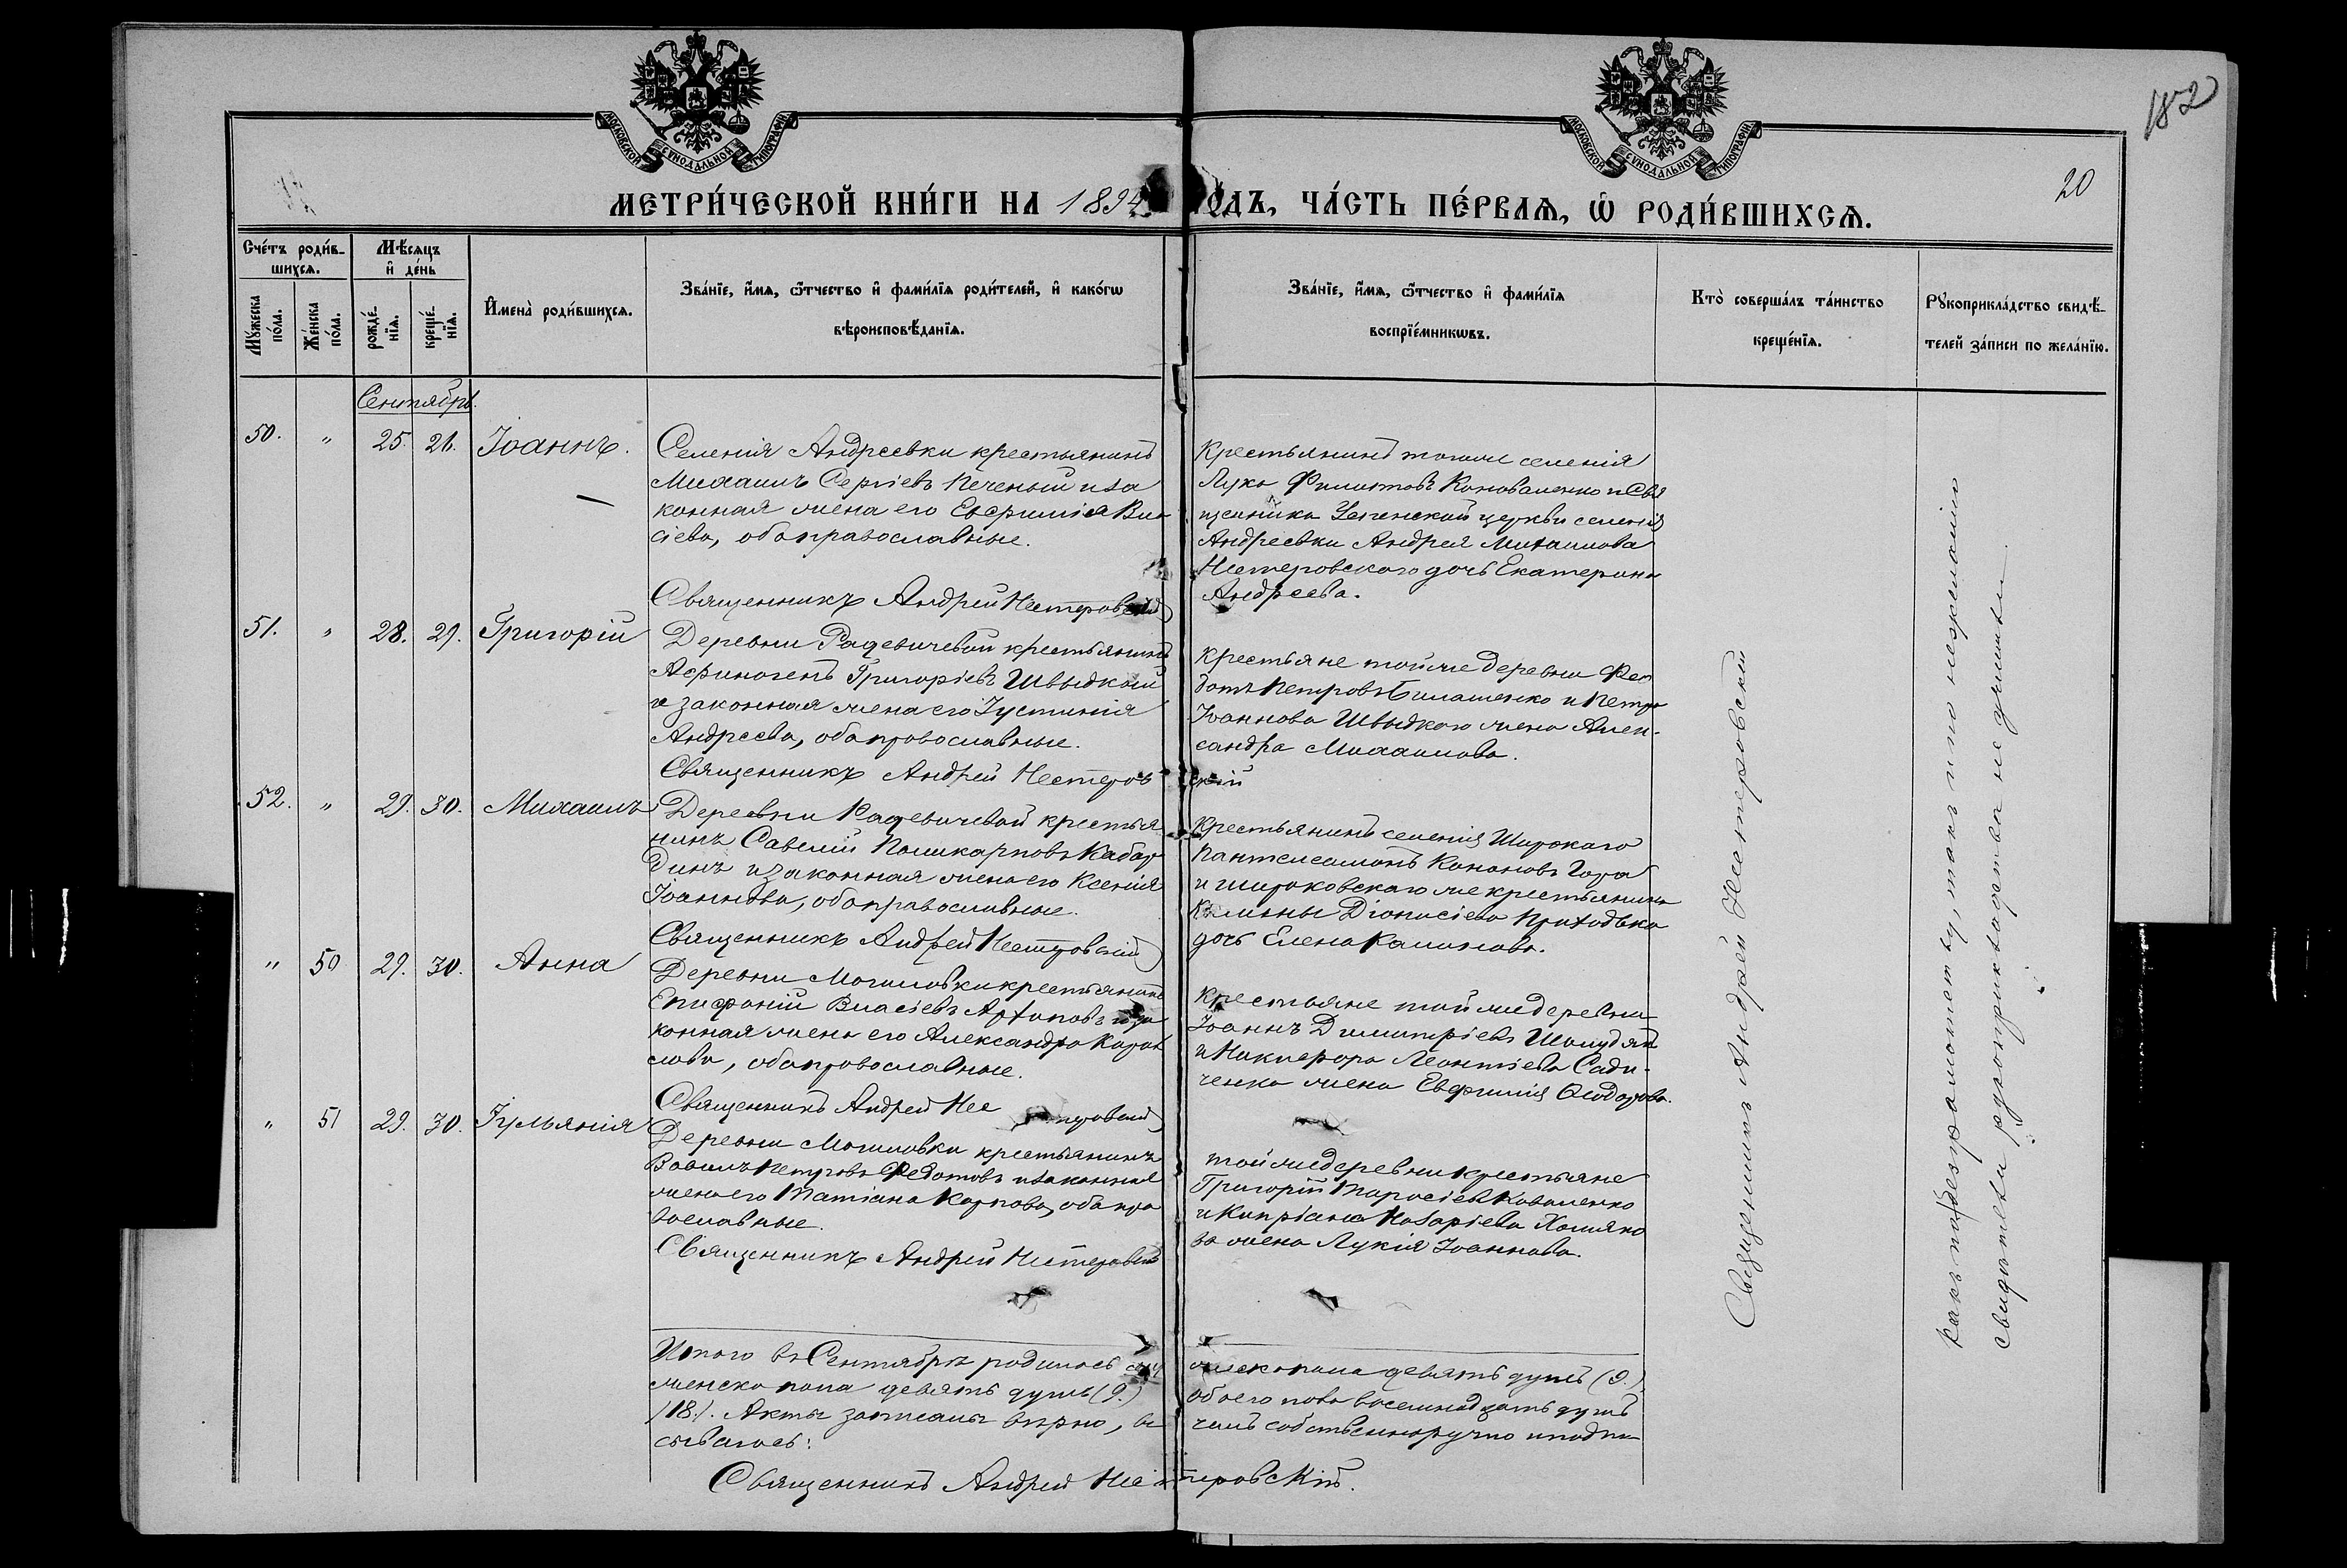 МОСКОВСКОЙ СУНОДАЛЬНОЙ ТИПОГРАФІИ
МОСКОВСКОЙ СУНОДАЛЬНОЙ ТИПОГРАФІИ
182
20
МЕТРИ́ЧЕСКОЙ КНИ́ГИ НА 1894 ГО́ДЪ, ЧА́СТЬ ПЕ́РВАѦ, Ѡ РОДИ́ВШИХСѦ.
Сче́тъ роди́в-
шихсѧ.
Му́жеска
по́ла.
Же́нска
по́ла.
Мѣ́сѧцъ
и҆ де́нь
рожде́-
нїѧ.
креще́-
нїѧ.
И҆мена̀ роди́вшихсѧ.
Зва́нїе, и҆́мѧ, ѻ҆́тчество и҆ фами́лїѧ роди́телей, и҆ како́гѡ
вѣроисповѣ́данїѧ.
Зва́нїе, и҆́мѧ, ѻ҆́тчество и҆ фами́лїѧ
воспрїе́мникѡвъ.
Кто̀ соверша́лъ та́инство
креще́нїѧ.
Рꙋкоприкла́дство свидѣ́-
телей за́писи по жела́нїю.
Сентябрь.
50. " 25. 26. Іоаннъ.
Селенія Андреевки крестьянинъ
Михаилъ Сергіевъ Печеный и за
конная жена его Евфимія Вла
сіева, оба православные.
Священникъ Андрей Нестеровскій
Крестьянинъ тогоже селенія
Лука Филиповъ Коноваленко и Свя
щенника Успенской церкви селенія
Андреевки Андрея Михаилова
Нестеровскаго дочь Екатерина
Андреева.
51. " 28. 29. Григорій
Деревни Рацевичевой крестьянинъ
Афиногенъ Григоріевъ Швыдкой
и законная жена его Іустинія
Андреева, оба православные.
Священникъ Андрей Нестеровскій
Крестьяне тойже деревни Фео
дотъ Петровъ Билашенко и Петра
Іоаннова Швыдкаго жена Алек-
сандра Михаилова.
52. " 29. 30. Михаилъ
Деревни Рацевичевой крестья
нинъ Савелій Поликарповъ Кабар
динъ и законная жена его Ксенія
Іоаннова, оба православные.
Священникъ Андрей Нестеровскій
Крестьянинъ селенія Широкаго
Пантелеимонъ Кононовъ Гора
и широковскаго же крестьянина
Діонисіева Приходька
дочь Елена
" 50 29. 30. Анна
Деревни Могиловки крестьянинъ
Епифаній Власіевъ Архиповъ и за
конная жена его Александра
слова, оба православные.
Священникъ Андрей Нестеровскій
Крестьяне тойже деревни
Іоаннъ Димитріевъ Шолудякъ
и Никифора Леонтіева Сади-
ченка жена Евфимія Ѳеодорова.
" 51 29. 30. Іуліанія
Деревни Могиловки крестьянинъ
Вавилъ Петровъ Федотовъ и законная
жена его Татіана Карпова, оба пра
вославные.
Священникъ Андрей Нестеровскій
Тойже деревни крестьяне
Григорій Тарасіевъ Коваленко
и Кипріана Назаріева Хомяко
ва жена Лукія Іоаннова.
Священникъ Андрей Нестеровскій
какъ по безграмотству, такъ и по нежеланію
свидѣтели рукоприкладства не учинили
Итого въ Сентябрѣ родилось мужеска пола девять душъ (9.)
женска пола девять душъ (9.) обоего пола восемнадцать душъ
(18). Акты записаны вѣрно, въ чемъ собственноручно и подпи
сываюсь:
Священникъ Андрей Нестеровскій.